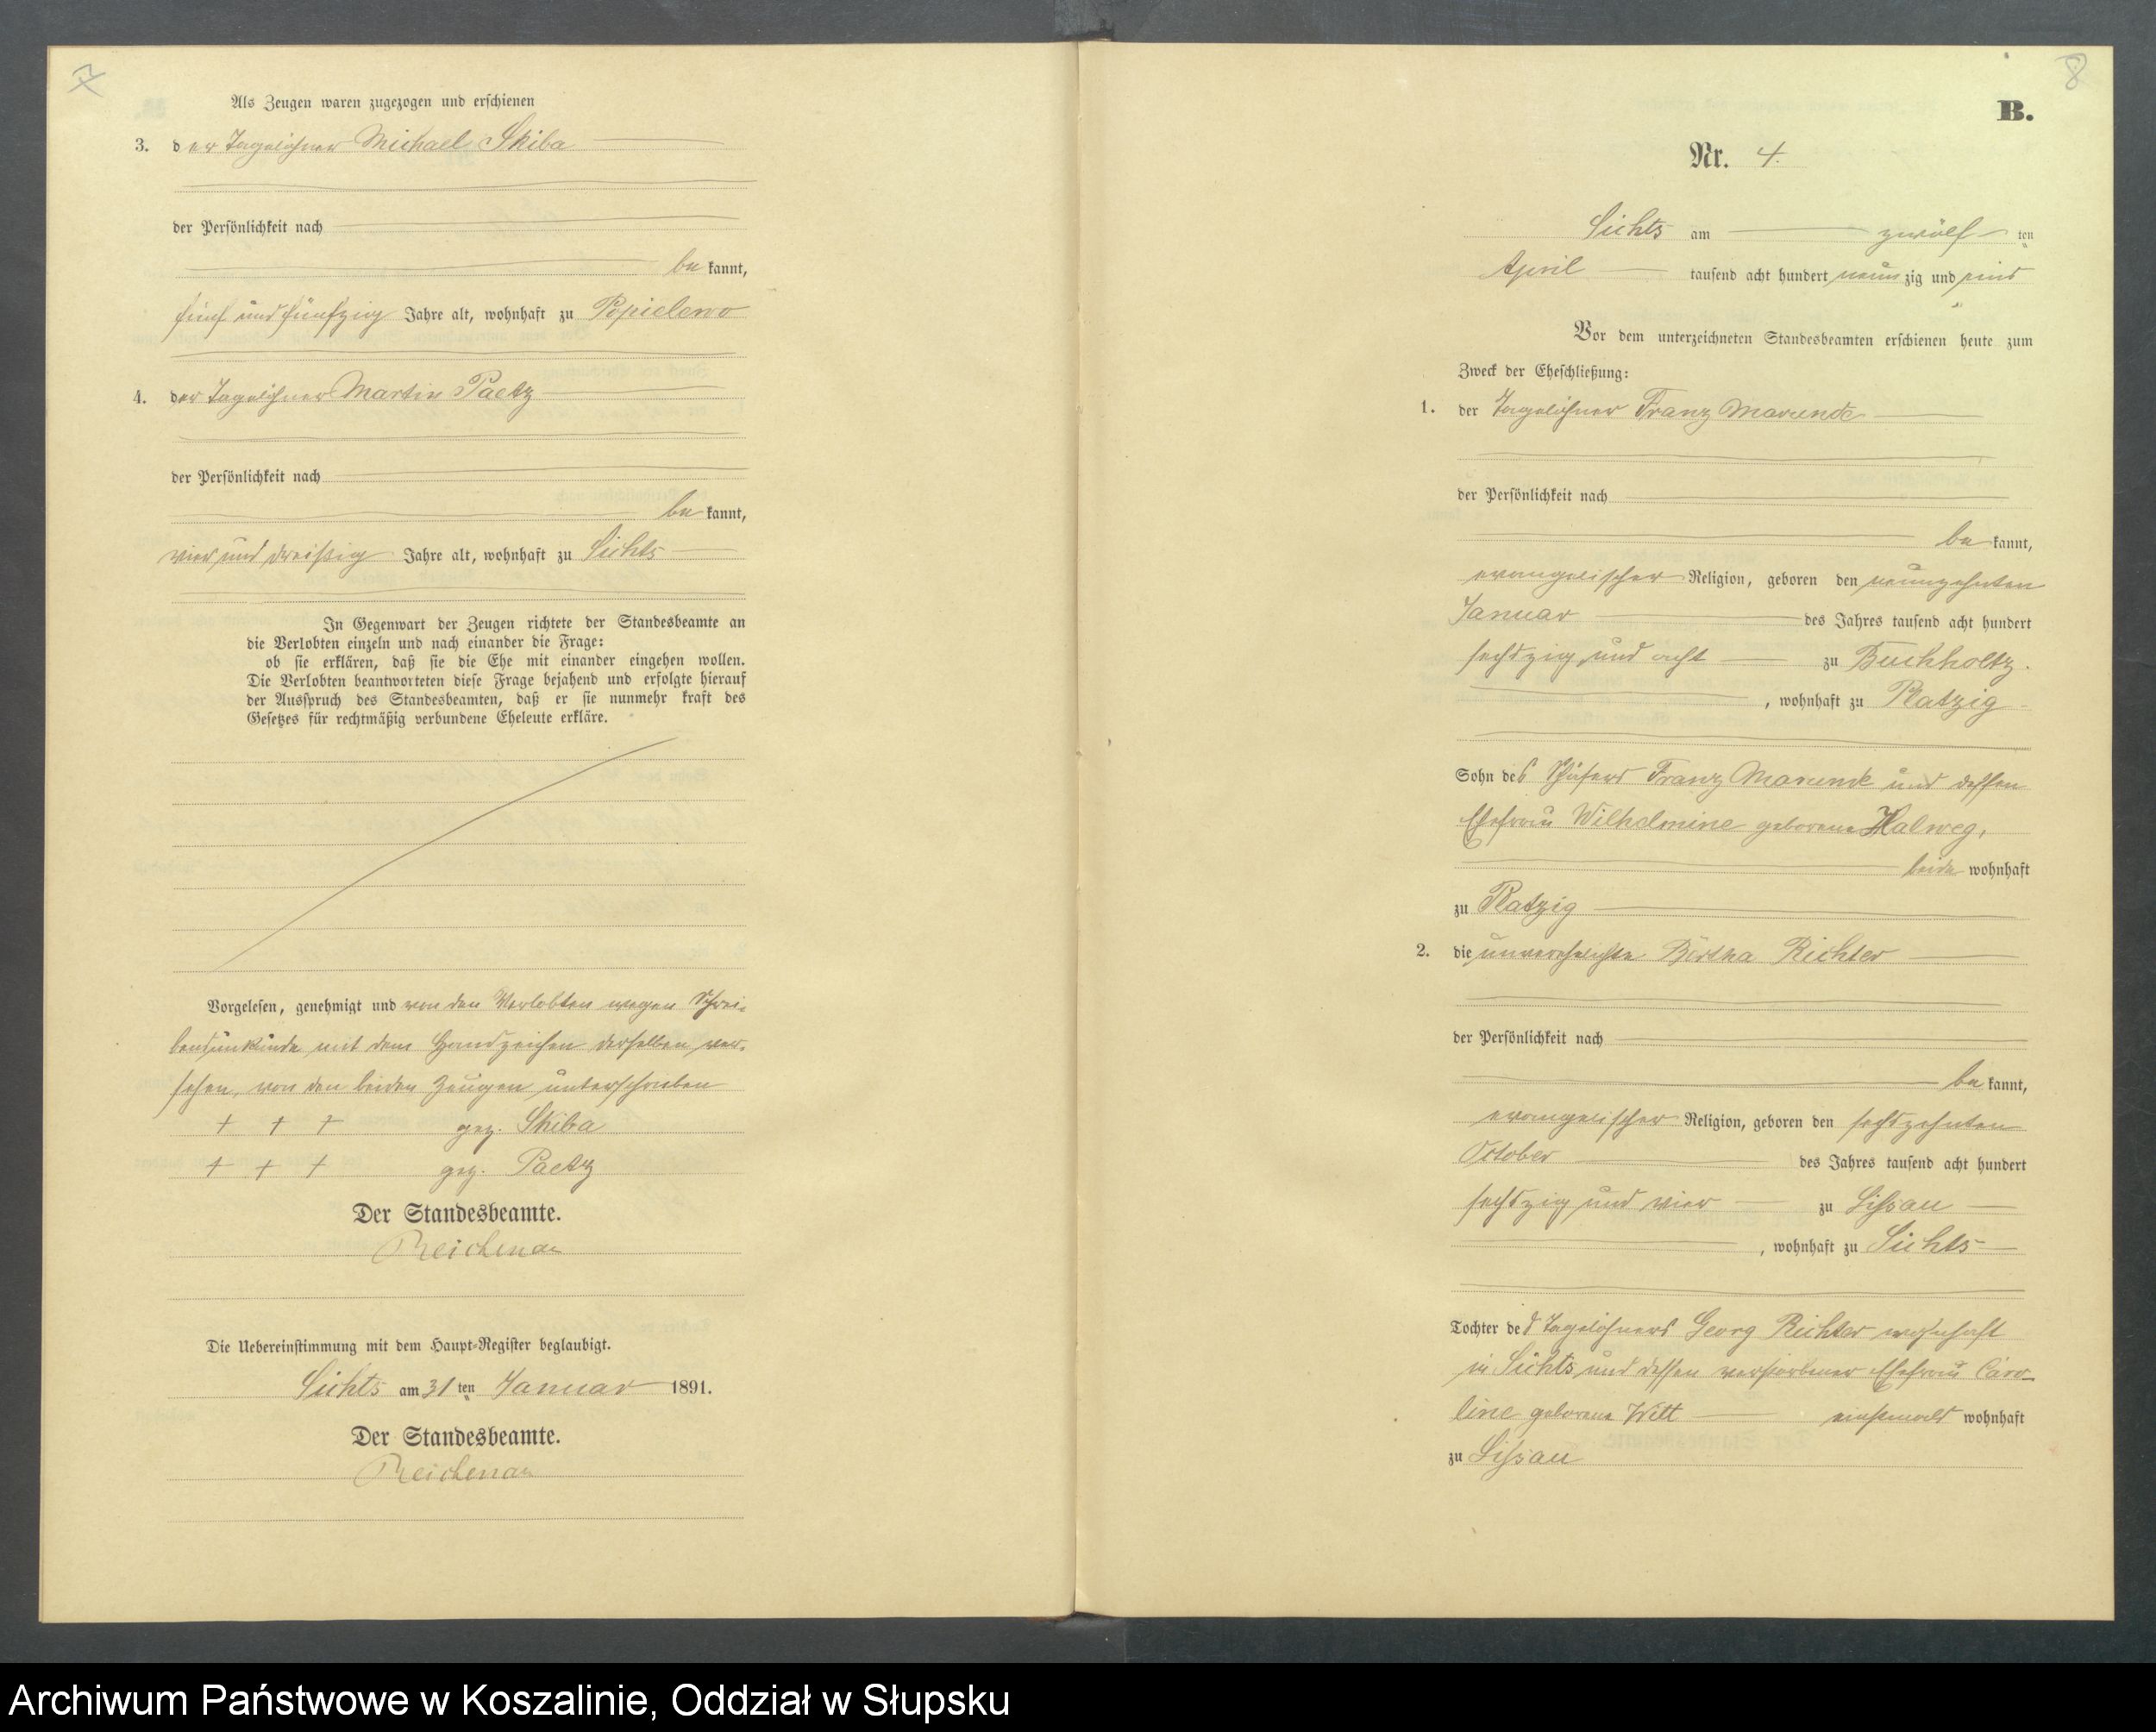 7
Als Zeugen waren zugezogen und erschienen
3. der Tagelöhner Michael Skiba
der Persönlichkeit nach
bekannt,
fünf und fünfzig Jahre alt, wohnhaft zu Popielewo
4. der Tagelöhner Martin Paetz
der Persönlichkeit nach
bekannt,
vier und dreißig Jahre alt, wohnhaft zu Lichts
In Gegenwart der Zeugen richtete der Standesbeamte an
die Verlobten einzeln und nach einander die Frage:
ob sie erklären, daß sie die Ehe mit einander eingehen wollen.
Die Verlobten beantworteten diese Frage bejahend und erfolgte hierauf
der Ausspruch des Standesbeamten, daß er sie nunmehr kraft des
Gesetzes für rechtmäßig verbundene Eheleute erkläre.
Vorgelesen, genehmigt und von den Verlobten wegen Schrei-
bensunkunde mit dem Handzeichen derselben ver-
sehen, von den beiden Zeugen unterschrieben
+ + + gez. Skiba
+ + + gez. Paetz
Der Standesbeamte.
Reichenau
Die Uebereinstimmung mit dem Haupt-Register beglaubigt.
Lichts am 31 ten Januar 1891.
Der Standesbeamte.
Reichenau
8
B.
Nr. 4.
Lichts am zwölf ten
April tausend acht hundert neunzig und eins
Vor dem unterzeichneten Standesbeamten erschienen heute zum
Zweck der Eheschließung:
1. der Tagelöhner Franz Marunde
der Persönlichkeit nach
bekannt,
evangelischer Religion, geboren den neunzehnten
Januar des Jahres tausend acht hundert
sechszig und acht zu Buchholtz.
, wohnhaft zu Platzig
Sohn des Schäfers Franz Marunde und dessen
Ehefrau Wilhelmine geborene Halweg,
beide wohnhaft
zu Platzig
2. die unverehelichte Bertha Richter
der Persönlichkeit nach
bekannt,
evangelischer Religion, geboren den sechszehnten
October des Jahres tausend acht hundert
sechszig und vier zu Lissau
, wohnhaft zu Lichts
Tochter des Tagelöhners Georg Richter wohnhaft
in Lichts und dessen verstorbener Ehefrau Caro-
line geborene Witt einstmals wohnhaft
zu Lissau
Archiwum Państwowe w Koszalinie, Oddział w Słupsku